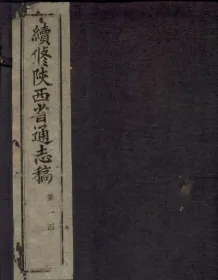 續修陝西省通志稿
第一函